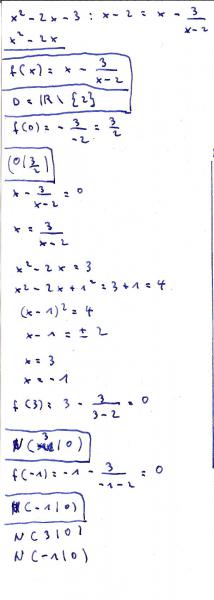 x² - 2x - 3 : x - 2 = x - 3/(x-2)
x² - 2x
f(x) = x - 3/(x-2)
D = ℝ \ {2}
f(0) = - 3/-2 = 3/2
(0|3/2)
x - 3/(x-2) = 0
x = 3/(x-2)
x² - 2x = 3
x² - 2x + 1² = 3 + 1 = 4
(x - 1)² = 4
x - 1 = ± 2
x = 3
x = -1
f(3) = 3 - 3/(3-2) = 0
N(3|0)
f(-1) = -1 - 3/(-1-2) = 0
N(-1|0)
N(3|0)
N(-1|0)